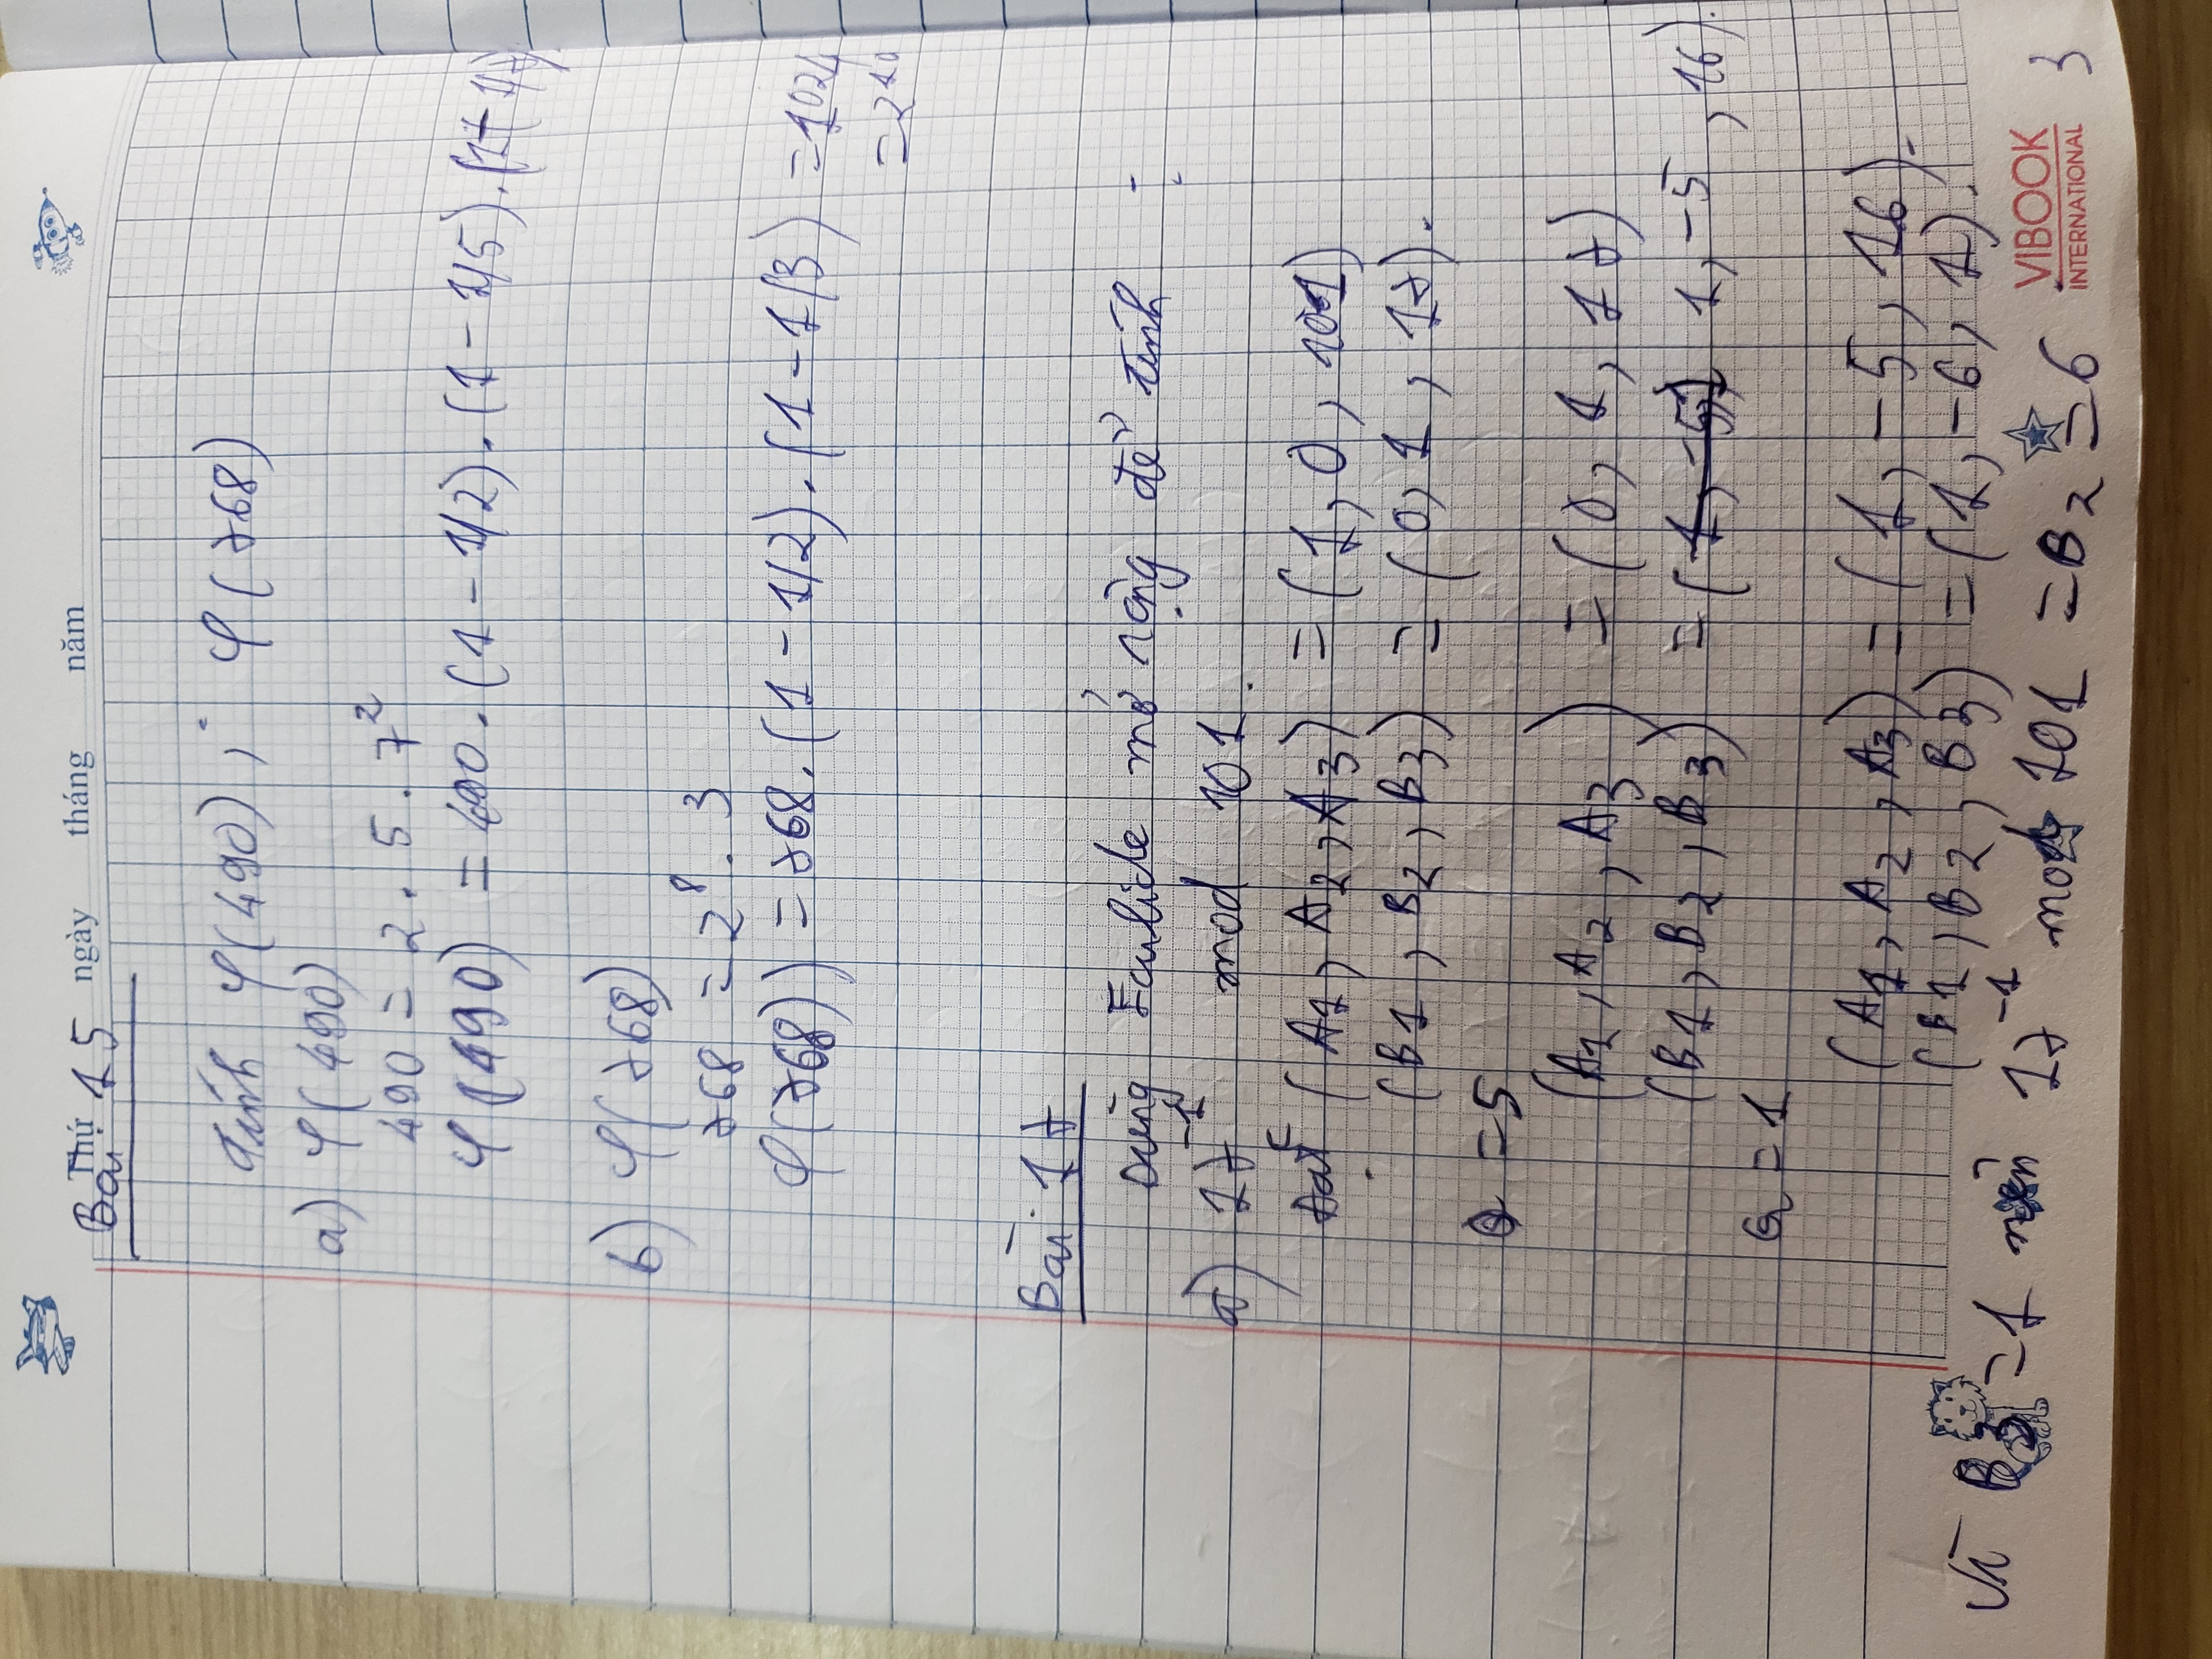 Thứ ngày tháng năm
Bài 15
Tính φ(490) ; φ(768)
a) φ(490)
490 = 2 . 5 . 7²
φ(490) = 490 . (1 - 1/2) . (1 - 1/5) . (1 - 1/7)
b) φ(768)
768 = 2⁸ . 3
φ(768)) = 768 . (1 - 1/2) . (1 - 1/3) = 1024
= 2¹⁰
Bài 17
Dùng Eculide mở rộng để tính :
a) 17⁻¹ mod 101.
Đặt (A1, A2, A3) = (1, 0, 101)
(B1, B2, B3) = (0, 1, 17).
Q = 5
(A1, A2, A3) = (0, 1, 17)
(B1, B2, B3) = ( 1, -5, 16).
Q = 1
(A1, A2, A3) = (1, -5, 16).
(B1, B2, B3) = (1, -6, 1).
Vì B3 = 1 nên 17⁻¹ mod 101 = B2 = 6
VIBOOK
INTERNATIONAL
3